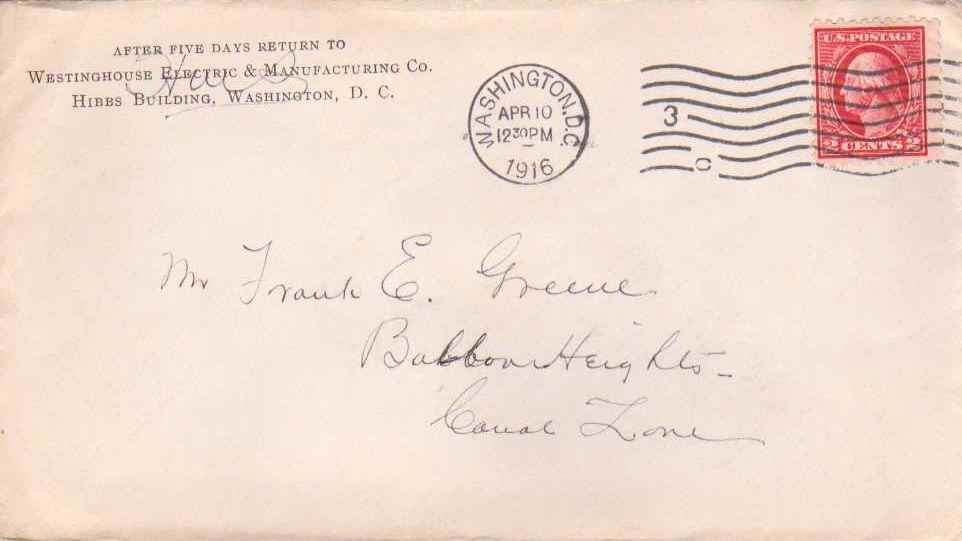 AFTER FIVE DAYS RETURN TO
WESTINGHOUSE ELECTRIC & MANUFACTURING CO.
HIBBS BUILDING, WASHINGTON, D. C.
WASHINGTON, D.C.
APR 10
12 30 PM
1916
3
C
U.S. POSTAGE
2 CENTS 2
Mr Frank E. Greene
Balboa Heights -
Canal Zone